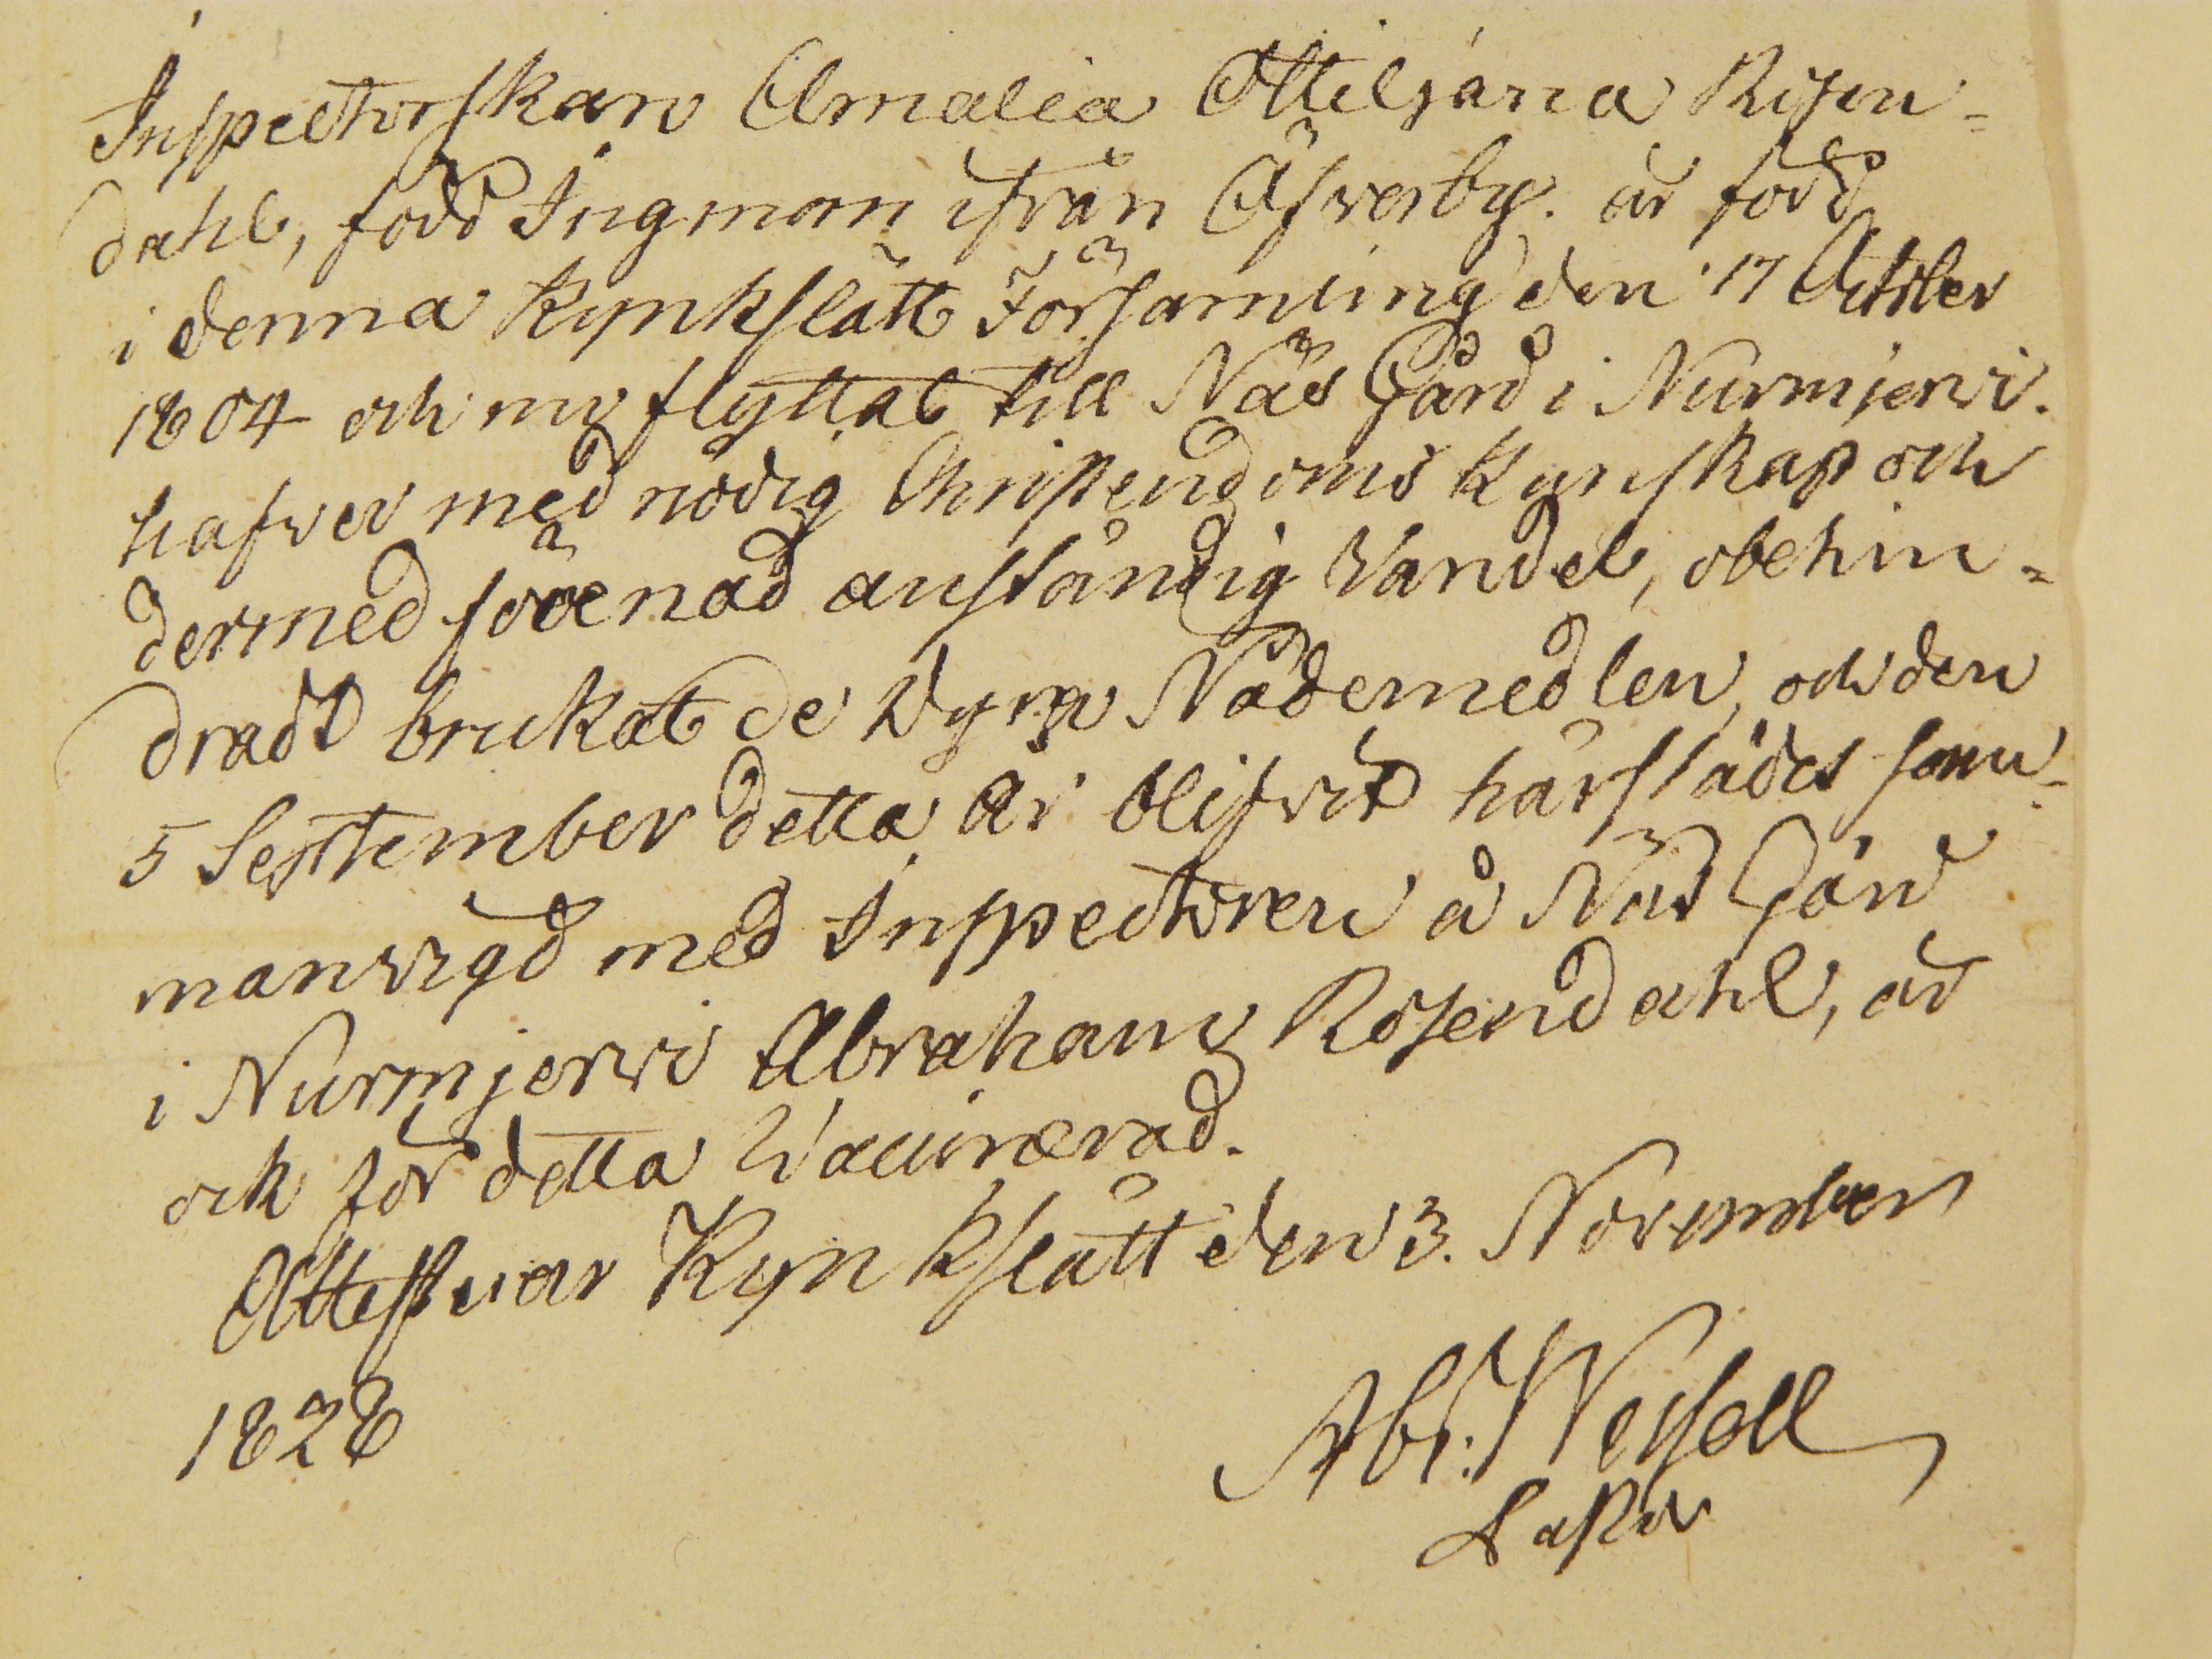 Inspectorskan Amalia Ottiljana Rosen=
dahl, född Ingman ifrån Öfwerby. är född
i denna Kyrkslätt Församling den 17 October
1804 och nu flyttat till Näs Gård i Nurmijerwi.
hafwer med nödig Christendoms Kunskap och
dermed förenad anständig Vandel, obehin=
dradt brukat de Dyra Nådemedlen, och den
5 September detta År blifvit härstädes sam=
manvigd med Inspectoren å Näs Gård
i Nurmjerwi Abraham Rosendahl, är
ock för detta Vaccinerad.
Attesterar Kyrkslätt den 3. November
1828
Abr: Wessell
Pastor